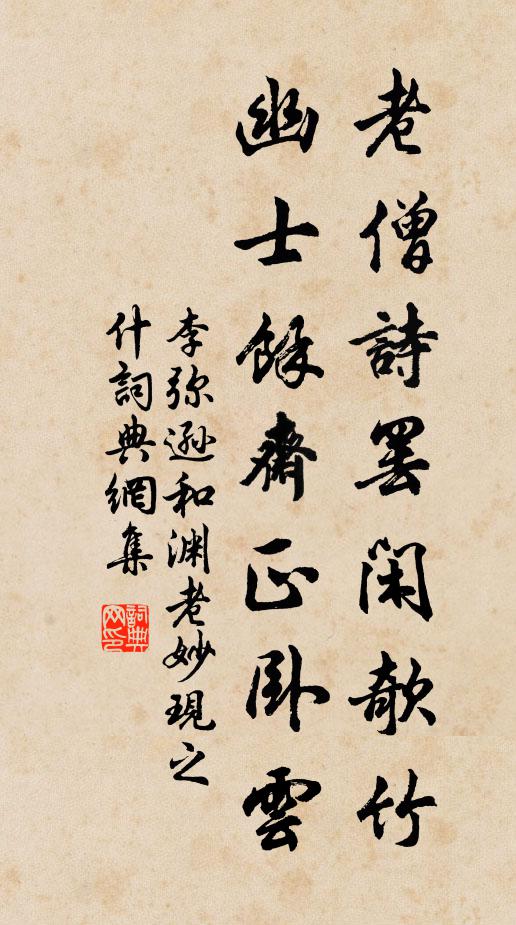 老僧詩罢閑欹竹
幽士餘齋正卧雲
李弥遜和渊老妙現之
什詞典網集
詞典網印